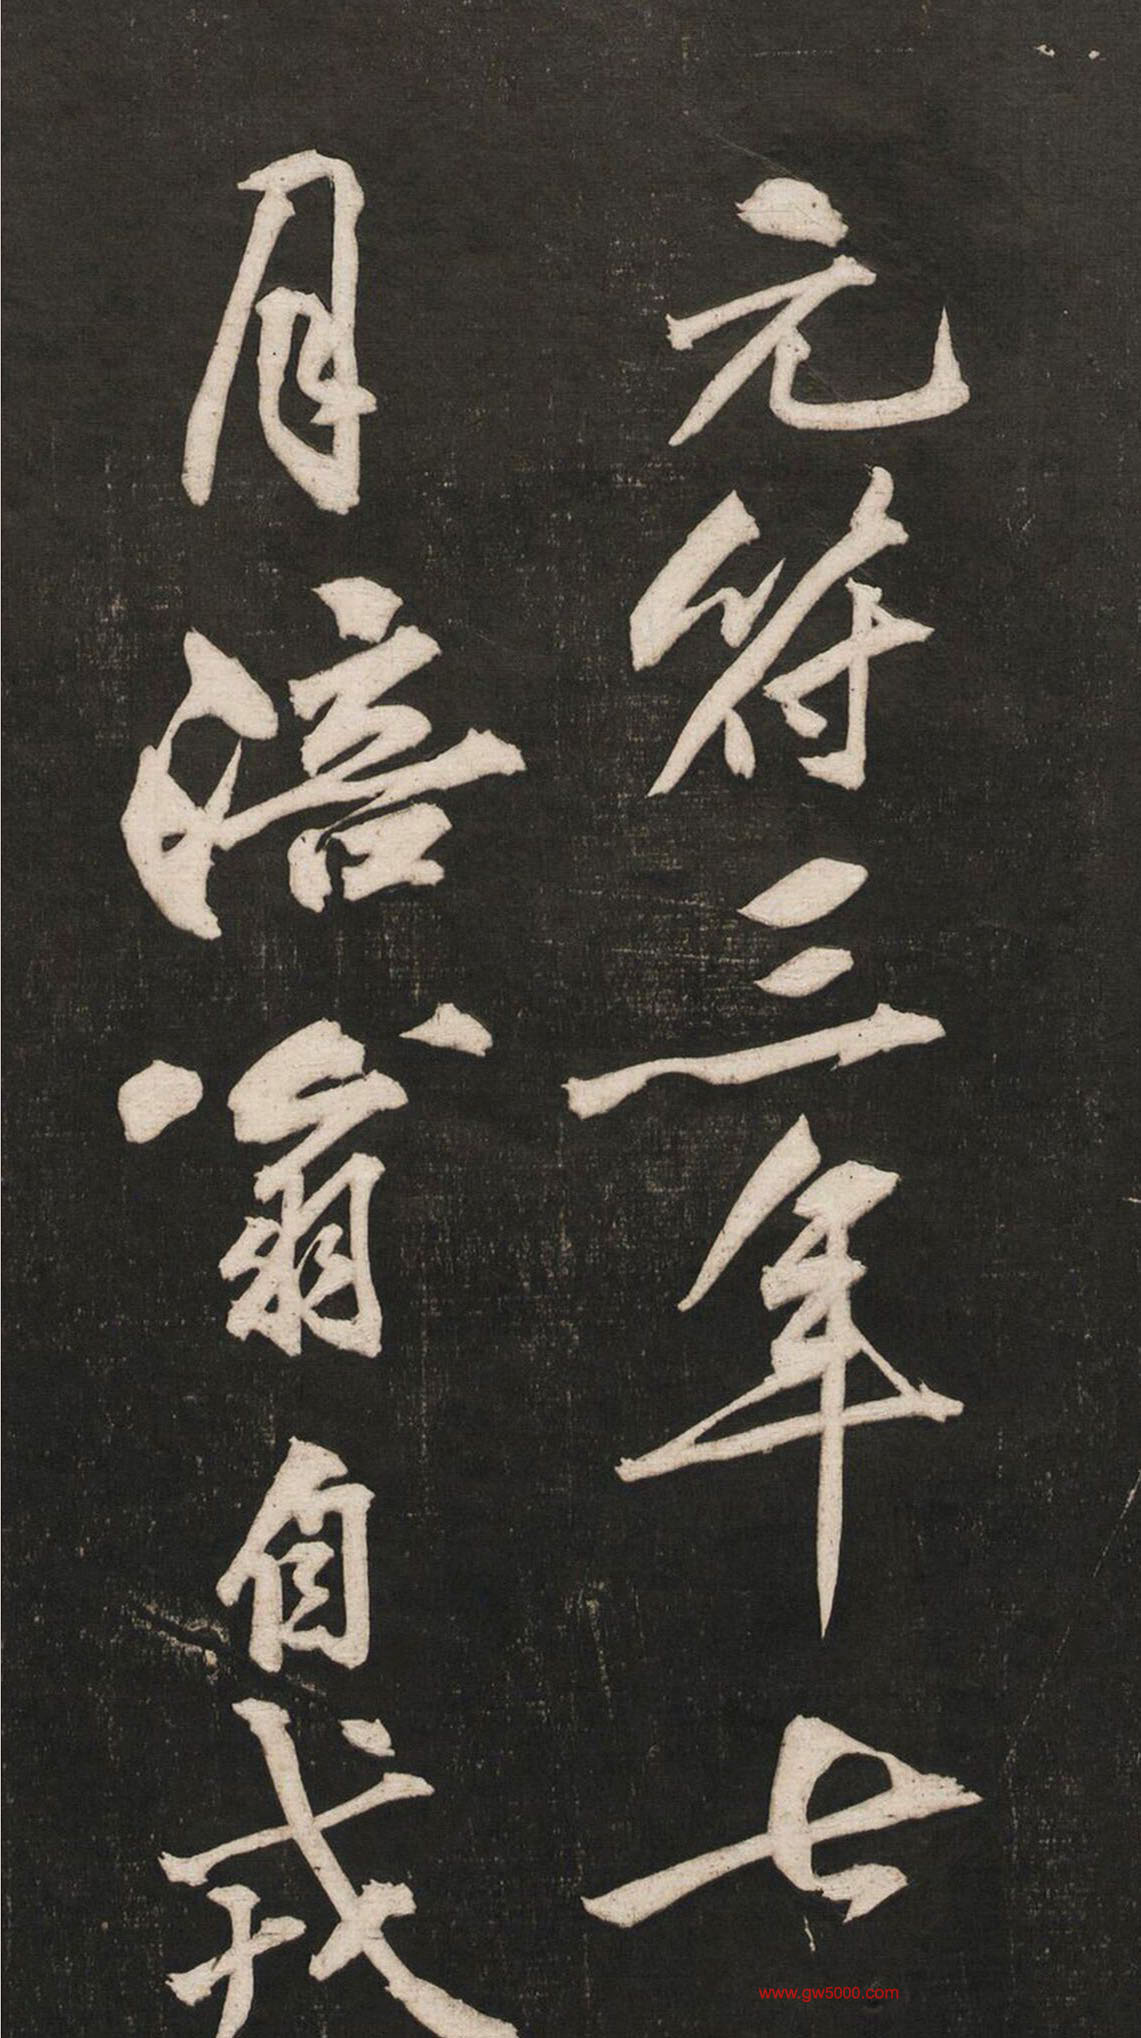 元符三年七
月涪翁自戎
www.gw5000.com